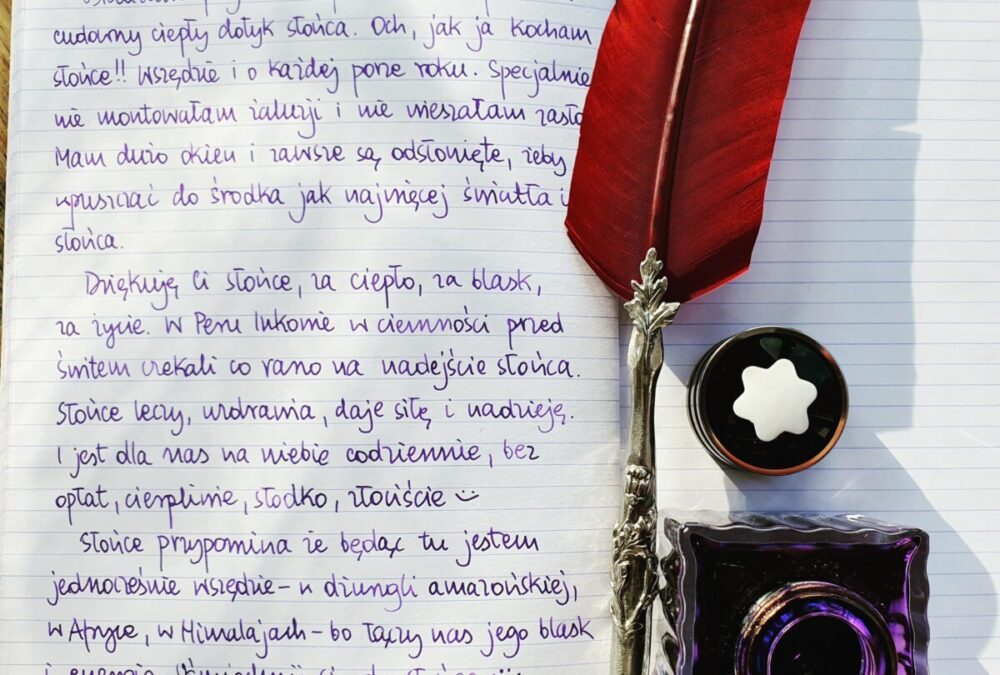 cudowny ciepły dotyk słońca. Och, jak ja kocham
słońce!! Wszędzie i o każdej porze roku. Specjalnie
nie montowałam żaluzji i nie wieszałam zasło
Mam dużo okien i zawsze są odsłonięte, żeby
wpuszczać do środka jak najwięcej światła i
słońca.
Dziękuję Ci słońce, za ciepło, za blask,
za życie. W Peru Inkowie w ciemności przed
świtem czekali co rano na nadejście słońca.
Słońce leczy, uzdrawia, daje siłę i nadzieję.
I jest dla nas na niebie codziennie, bez
opłat, cierpliwie, słodko, złociście
Słońce przypomina że będąc tu jestem
jednocześnie wszędzie - w dżungli amazońskiej,
w Afryce, w Himalajach - bo łączy nas jego blask
i energia